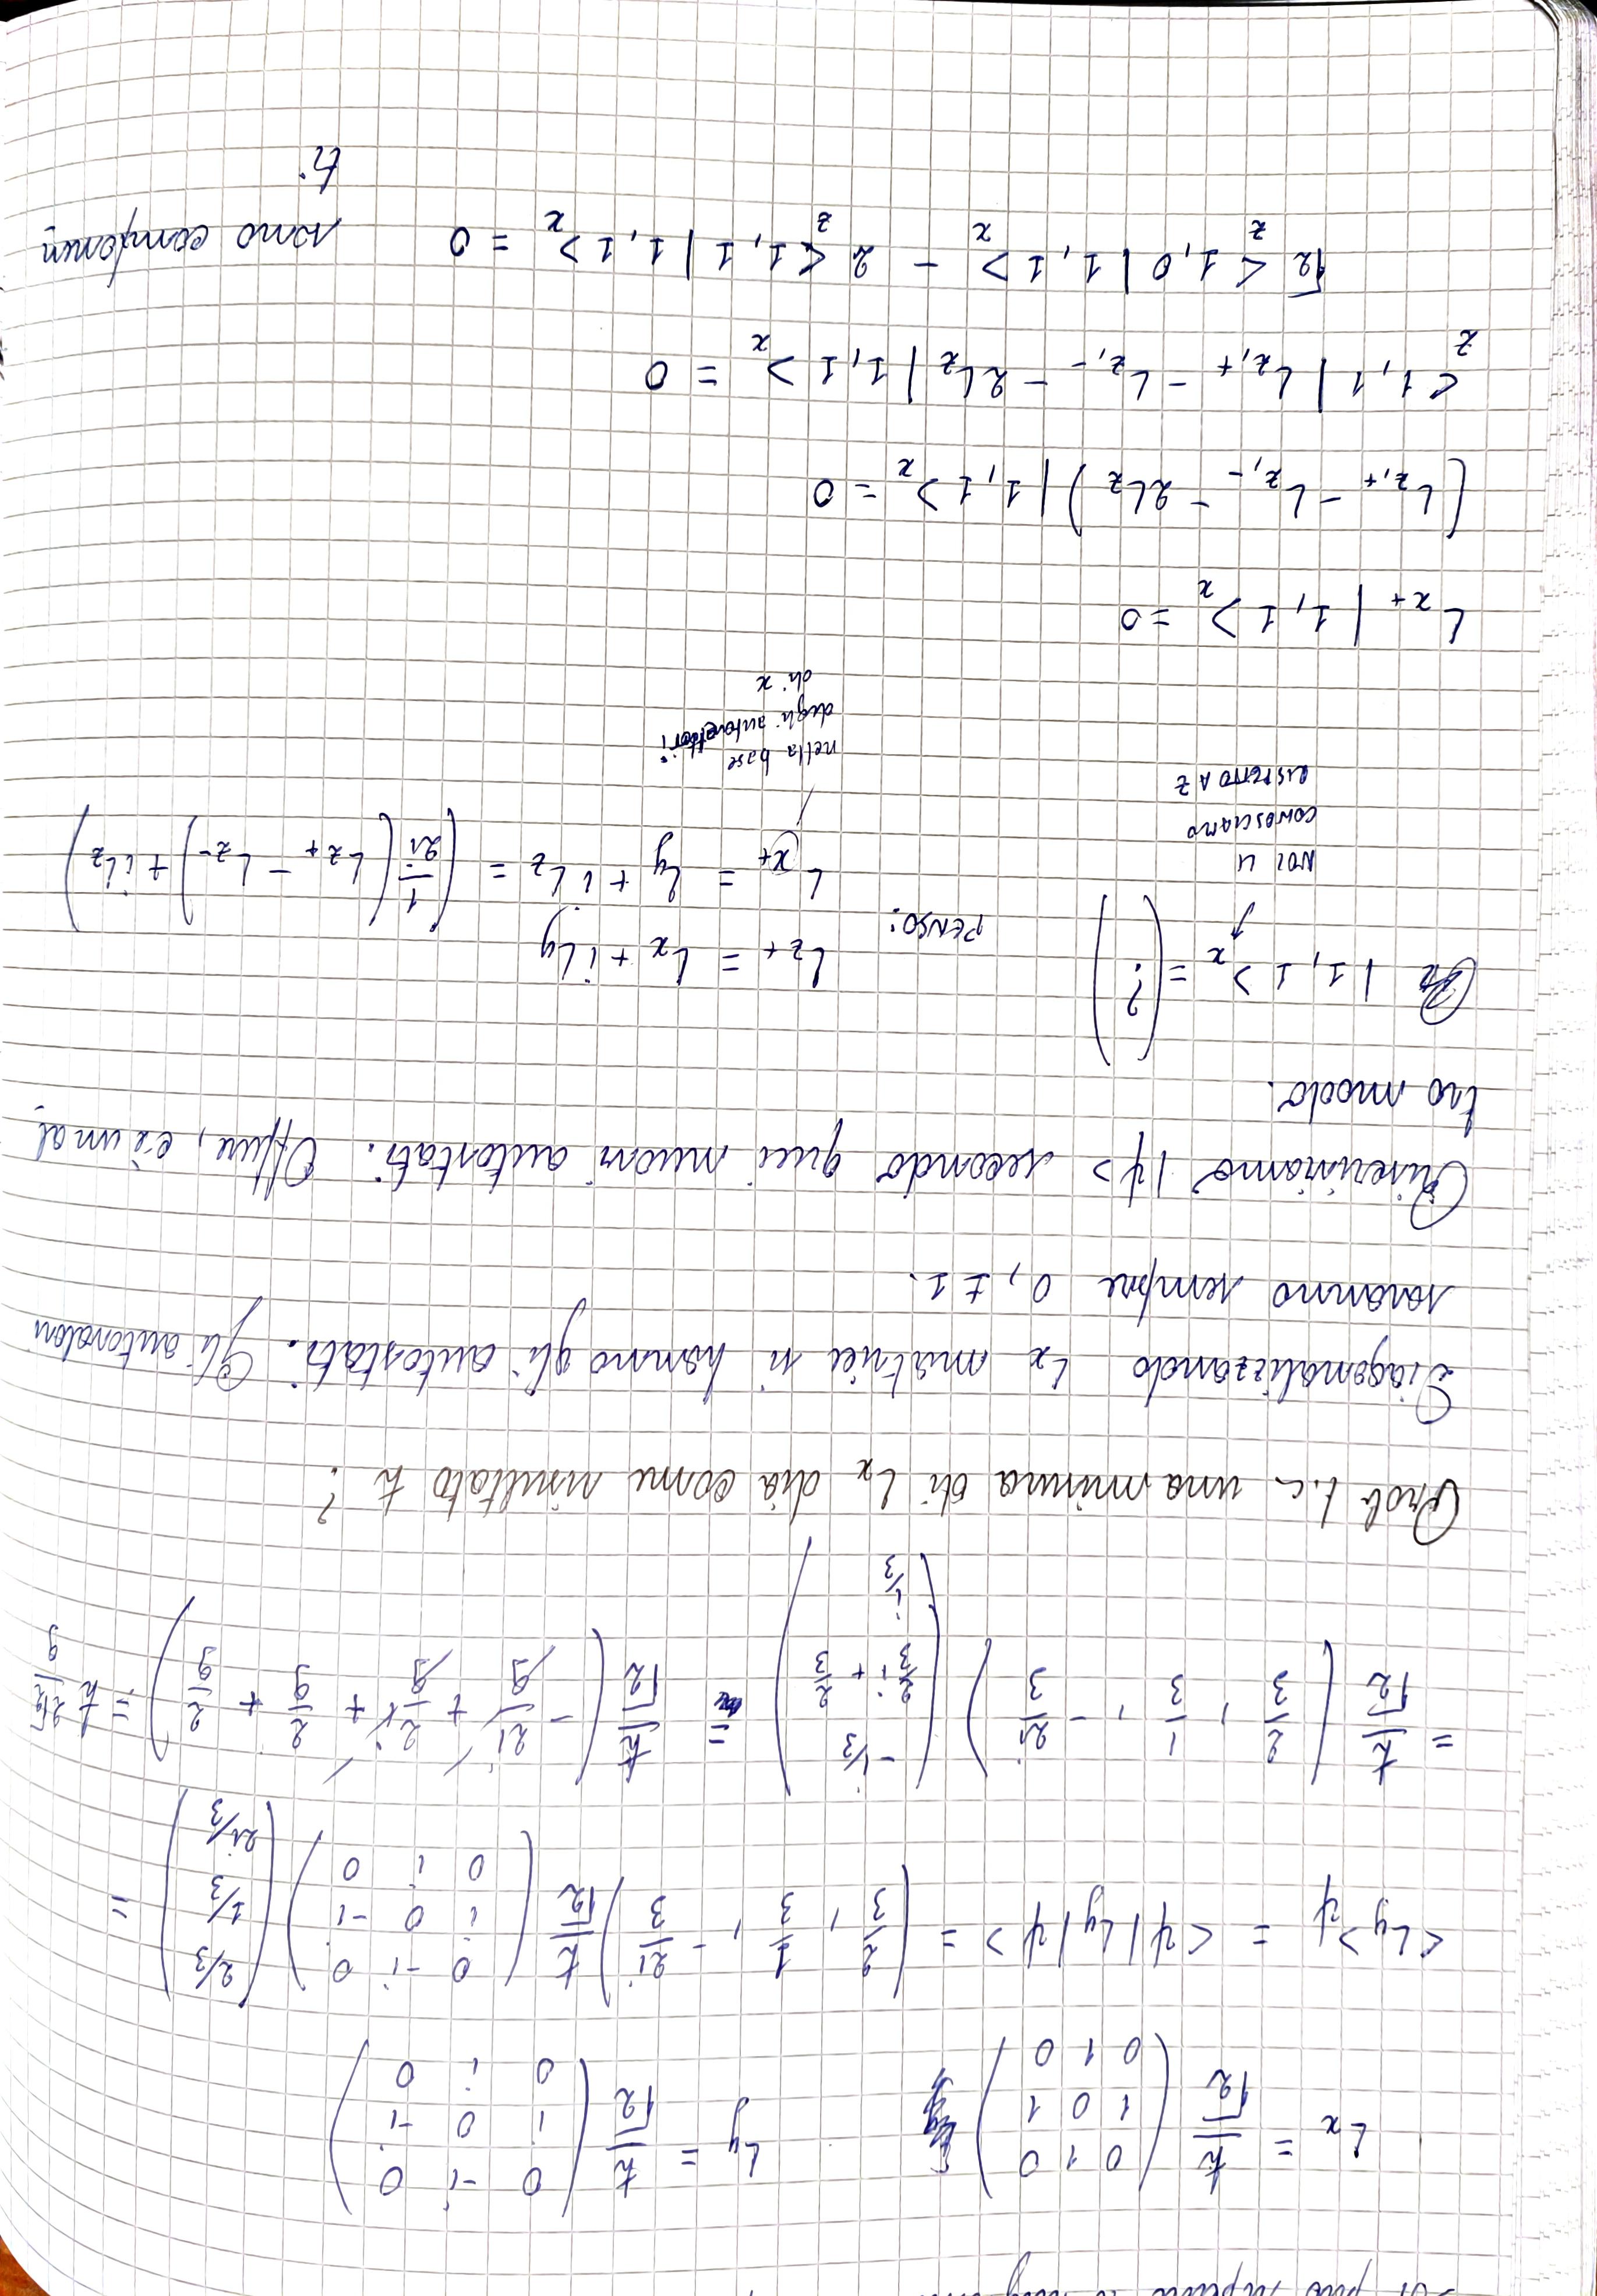 si può
L_x = ħ/√2 ( 0 1 0 ; 1 0 1 ; 0 1 0 )   L_y = ħ/√2 ( 0 -i 0 ; i 0 -i ; 0 i 0 )
<L_y>_ψ = <ψ|L_y|ψ> = ( 2/3 , 1/3 , - 2i/3 ) ħ/√2 ( 0 -i 0 ; i 0 -i ; 0 i 0 ) ( 2/3 ; 1/3 ; 2i/3 ) =
= ħ/√2 ( 2/3 , 1/3 , - 2i/3 ) ( -i/3 ; 2/3 i + 2/3 ; i/3 ) = ħ/√2 ( - 2i/9 + 2/9 i + 2/9 + 2/9 ) = ħ 2√2/9
Prob t.c. una misura di L_x dia come risultato ħ ?
Diagonalizzando L_x matrice si hanno gli autostati. Gli autovalori
saranno sempre 0, ± 1.
Riscriviamo |ψ> secondo quei nuovi autostati. Oppure, c'è un al
tro modo.
|1,1>_x = ( ? )
L_z+ = L_x + i L_y
PENSO:
L_x+ = L_y + i L_z = ( 1/2i ( L_z+ - L_z- ) + i L_z )
NOI LI
CONOSCIAMO
RISPETTO A Z
nella base
degli autovettori
di x
L_x+ |1,1>_x = 0
( L_z,+ - L_z,- - 2L_z ) |1,1>_x = 0
_z<1,1| L_z,+ - L_z,- - 2L_z |1,1>_x = 0
√2 _z<1,0|1,1>_x - 2 _z<1,1|1,1>_x = 0   sono componen
ti